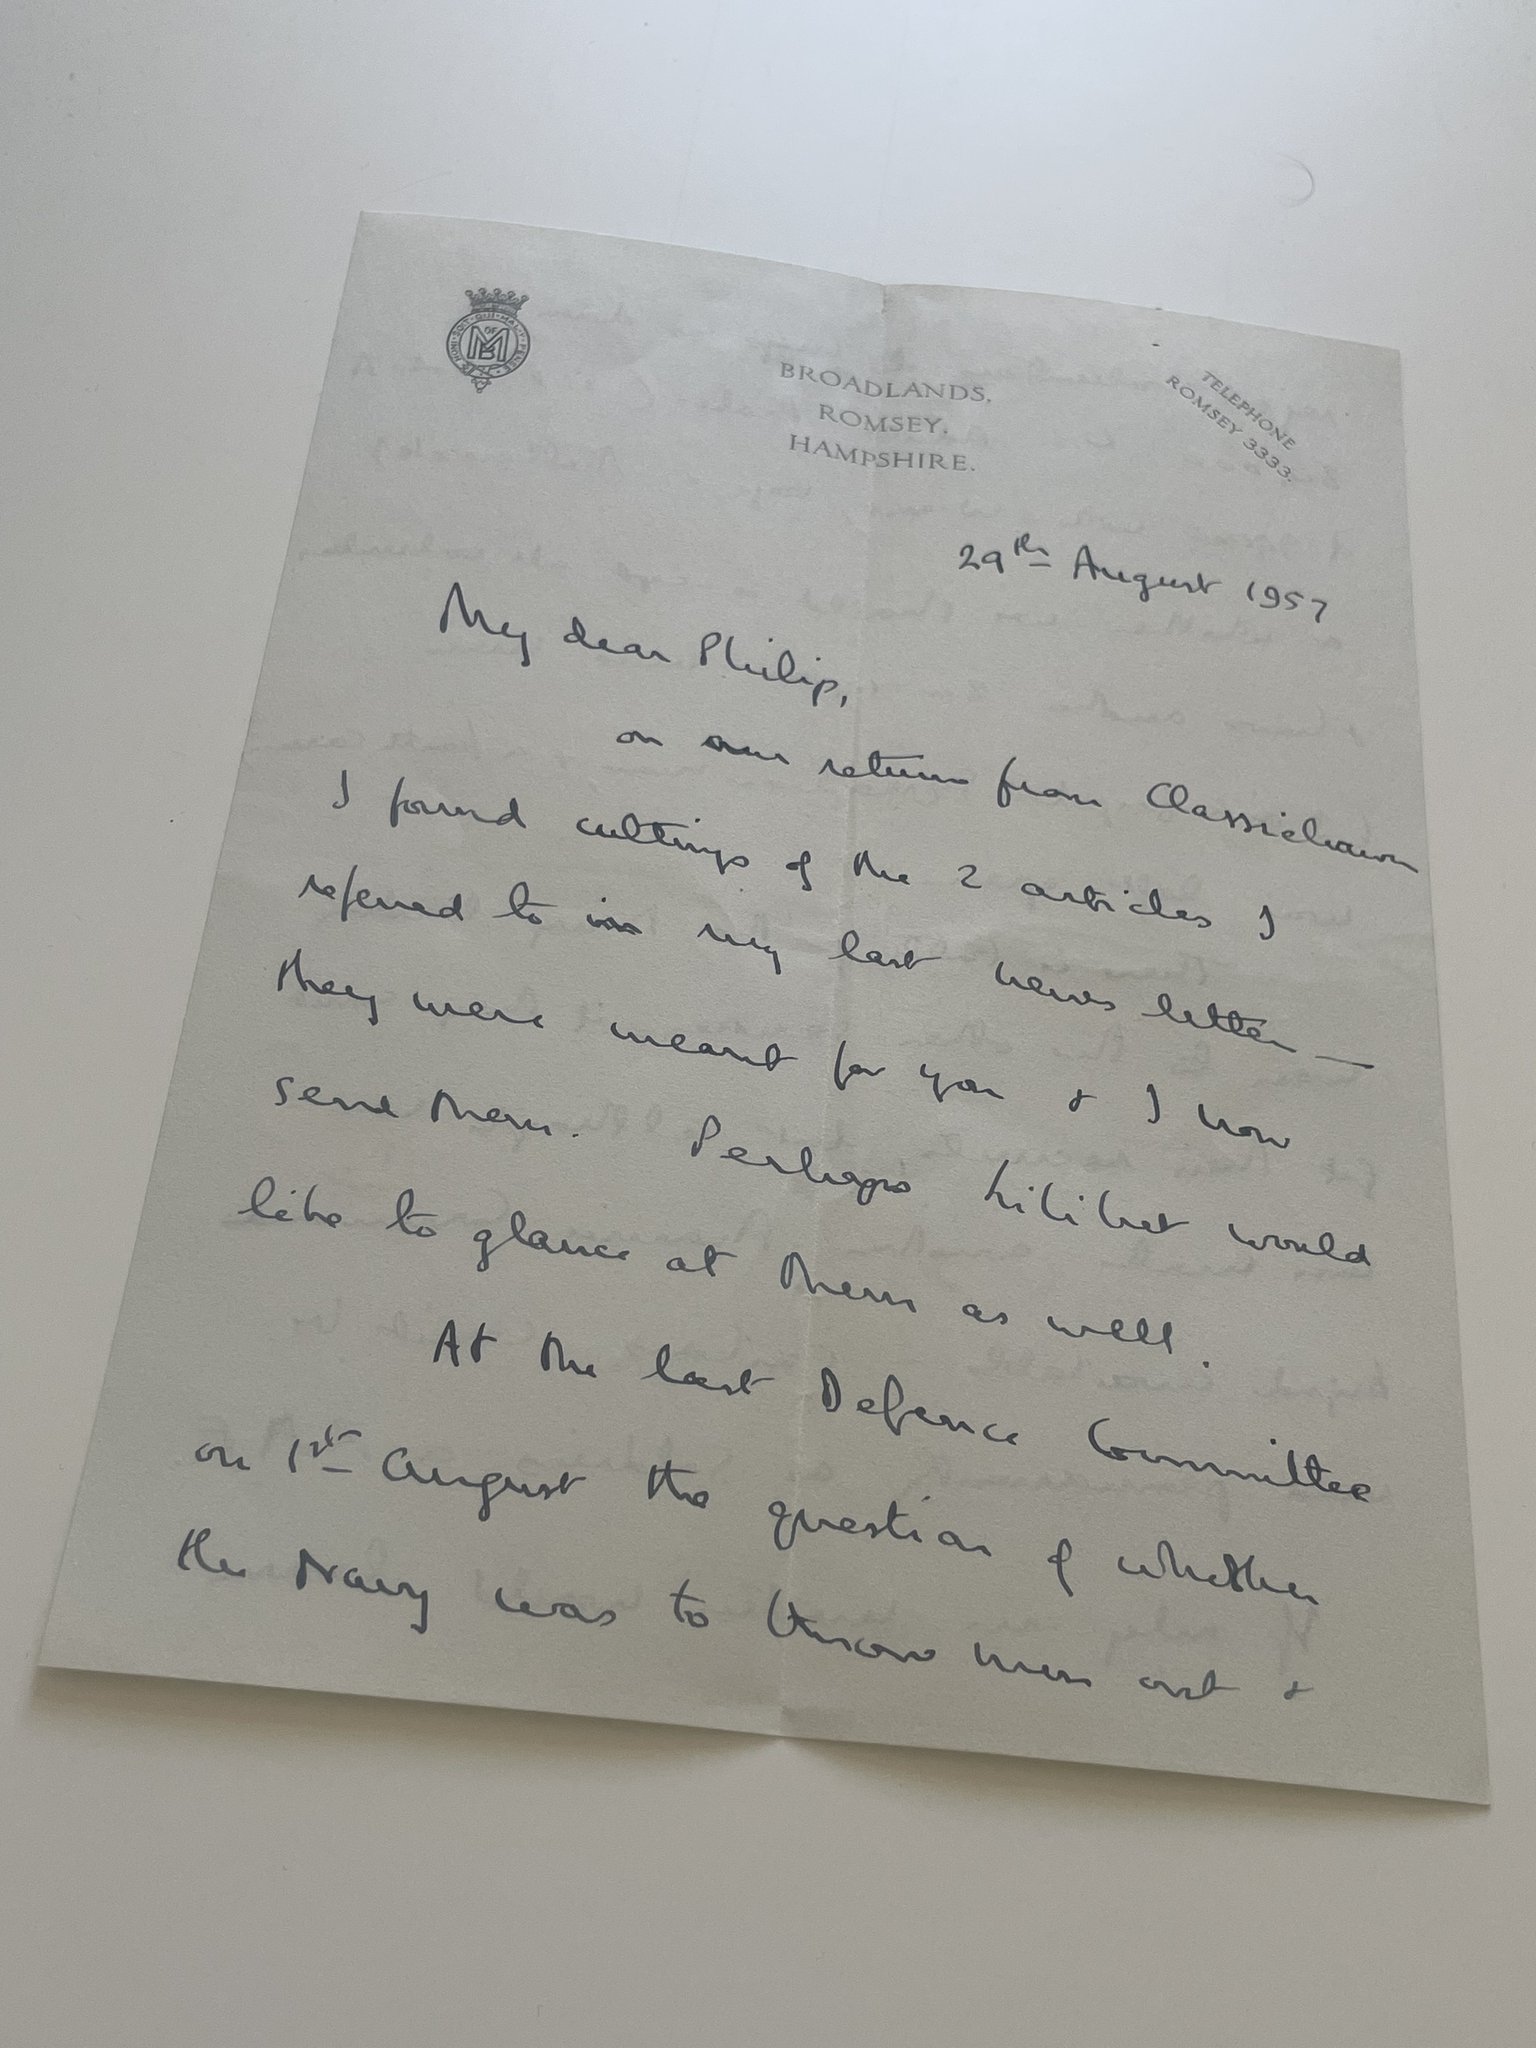 HONI · SOIT · QUI · MAL · Y · PENSE
M OF B
BROADLANDS,
ROMSEY,
HAMPSHIRE.
TELEPHONE
ROMSEY 3333.
29th August 1957
My dear Philip,
on our return from Classiebawn
I found cuttings of the 2 articles I
referred to in my last news letter —
they were meant for you & I now
send them. Perhaps Lilibet would
like to glance at them as well.
At the last Defence Committee
on 1st August the question of whether
the Navy was to throw men out &